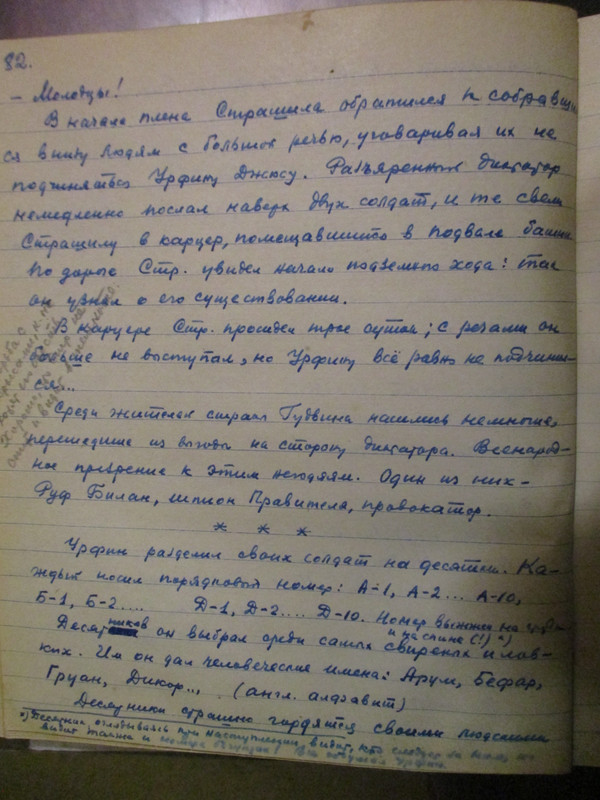 82.
– Молодцы!
В начале плена Страшила обратился к собравшим
ся внизу людям с большой речью, уговаривая их не
подчиняться Урфину Джюсу. Разъяренный диктатор
немедленно послал наверх двух солдат, и те свели
Страшилу в карцер, помещавшийся в подвале башни
По дороге Стр. увидел начало подземного хода: так
он узнал о его существовании.
В карцере Стр. просидел трое суток; с речами он
больше не выступал, но Урфину всё равно не подчинил-
ся...
Среди жителей страны Гудвина нашлись немногие,
перешедшие из выгоды на сторону диктатора. Всенарод-
ное презрение к этим негодяям. Один из них –
Руф Билан, шпион Правителя, провокатор.
* * *
Урфин разделил своих солдат на десятки. Ка-
ждый носил порядковый номер: А-1, А-2... А-10,
Б-1, Б-2.... Д-1, Д-2.... Д-10. Номер выжжен на груди
и на спине (!)
Десятников он выбрал среди самых свирепых и лов-
ких. Им он дал человеческие имена: Арум, Бефар,
Груан, Дикор... (англ. алфавит)
Десятники страшно гордятся своими людскими
Десятник, оглядываясь при наступлении, видит, кто следует за ним, но
видит также и